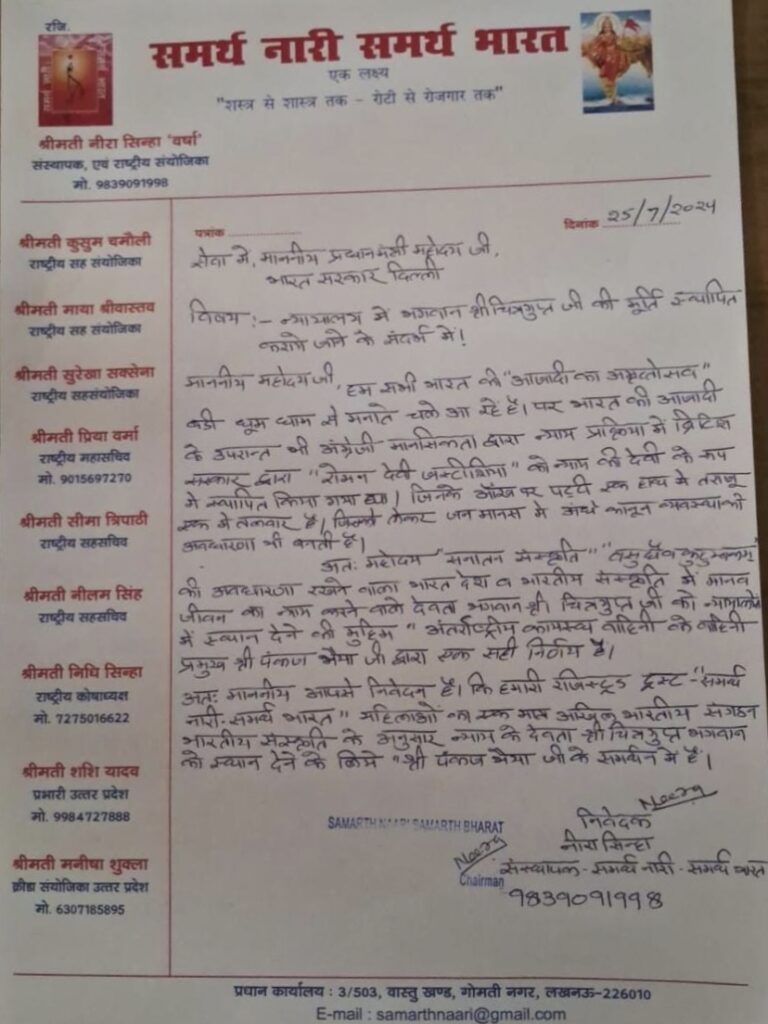 रजि.
समर्थ नारी समर्थ भारत
एक लक्ष्य
"शस्त्र से शास्त्र तक - रोटी से रोजगार तक"
श्रीमती नीरा सिन्हा 'वर्षा'
संस्थापक, एवं राष्ट्रीय संयोजिका
मो. 9839091998
श्रीमती कुसुम चमौली
राष्ट्रीय सह संयोजिका
श्रीमती माया श्रीवास्तव
राष्ट्रीय सह संयोजिका
श्रीमती सुरेखा सक्सेना
राष्ट्रीय सहसंयोजिका
श्रीमती प्रिया वर्मा
राष्ट्रीय महासचिव
मो. 9015697270
श्रीमती सीमा त्रिपाठी
राष्ट्रीय सहसचिव
श्रीमती नीलम सिंह
राष्ट्रीय सहसचिव
श्रीमती निधि सिन्हा
राष्ट्रीय कोषाध्यक्ष
मो. 7275016622
श्रीमती शशि यादव
प्रभारी उत्तर प्रदेश
मो. 9984727888
श्रीमती मनीषा शुक्ला
क्रीडा संयोजिका उत्तर प्रदेश
मो. 6307185895
पत्रांक ..................
दिनांक 25/7/2024
सेवा में, माननीय प्रधानमंत्री महोदय जी,
भारत सरकार दिल्ली
विषय :- न्यायालय में भगवान श्री चित्रगुप्त जी की मूर्ति स्थापित
कराये जाने के संदर्भ में!
माननीय महोदय जी, हम सभी भारत की "आजादी का अमृतोत्सव"
बड़ी धूम धाम से मनाते चले आ रहें है। पर भारत की आजादी
के उपरान्त भी अंग्रेजी मानसिकता द्वारा न्याय प्रक्रिया में ब्रिटिश
सरकार द्वारा "रोमन देवी जस्टीशिया" को न्याय की देवी के रूप
में स्थापित किया गया था। जिनके आँख पर पट्टी एक हाथ मे तराजू
एक में तलवार है। जिसको लेकर जन मानस मे अंधे कानून व्यवस्था की
अवधारणा भी बनती है।
अतः महोदय "सनातन संस्कृति" "वसुधैव कुटुम्बकम्"
की अवधारणा रखने वाला भारत देश व भारतीय संस्कृति में मानव
जीवन का न्याय करने वाले देवता भगवान श्री चित्रगुप्त जी को न्यायालयों
में स्थान देने की मुहिम "अंतर्राष्ट्रीय कायस्थ वाहिनी के वाहिनी
प्रमुख श्री पंकज भैया जी द्वारा एक सही निर्णय है।
अतः माननीय आपसे निवेदन है। कि हमारी रजिस्ट्रड ट्रस्ट - "समर्थ
नारी-समर्थ भारत" महिलाओं का एक मात्र अखिल भारतीय संगठन
भारतीय संस्कृति के अनुसार न्याय के देवता श्री चित्रगुप्त भगवान
को स्थान देने के लिये "श्री पंकज भैया जी के समर्थन में है।
Neera
निवेदक
नीरा सिन्हा
संस्थापक - समर्थ नारी - समर्थ भारत
9839091998
SAMARTH NAARI SAMARTH BHARAT
Neera
Chairman
प्रधान कार्यालय : 3/503, वास्तु खण्ड, गोमती नगर, लखनऊ-226010
E-mail : samarthnaari@gmail.com